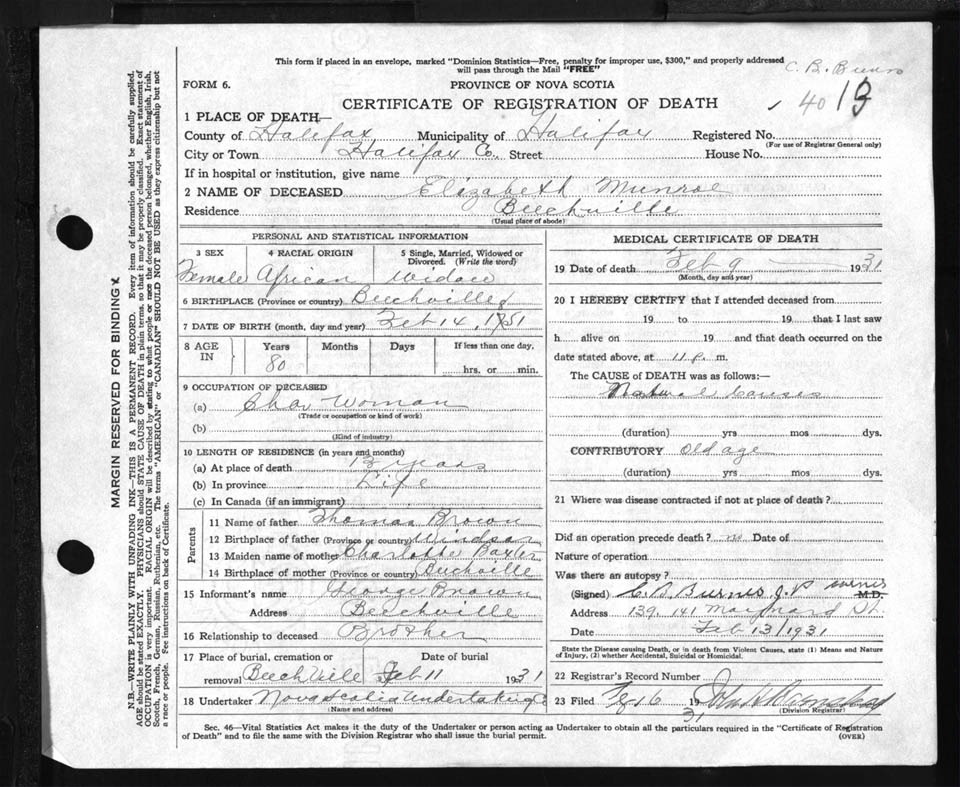 This form if placed in an envelope, marked "Dominion Statistics—Free, penalty for improper use, $300," and properly addressed
will pass through the Mail "FREE"
C. B. Burns
FORM 6.
PROVINCE OF NOVA SCOTIA
CERTIFICATE OF REGISTRATION OF DEATH
40
1 PLACE OF DEATH—
County of Halifax Municipality of Halifax Registered No.
(For use of Registrar General only)
City or Town Halifax Co. Street House No.
If in hospital or institution, give name
2 NAME OF DECEASED Elizabeth Munroe
Residence Beechville
(Usual place of abode)
PERSONAL AND STATISTICAL INFORMATION
3 SEX 4 RACIAL ORIGIN 5 Single, Married, Widowed or Divorced. (Write the word)
Female African Widow
6 BIRTHPLACE (Province or country) Beechville
7 DATE OF BIRTH (month, day and year) Feb 14, 1851
8 AGE IN Years Months Days If less than one day,
80 hrs. or min.
9 OCCUPATION OF DECEASED
(a) Char Woman
(Trade or occupation or kind of work)
(b)
(Kind of industry)
10 LENGTH OF RESIDENCE (in years and months)
(a) At place of death years
(b) In province Life
(c) In Canada (if an immigrant)
Parents
11 Name of father Thomas Brown
12 Birthplace of father (Province or country) Windsor
13 Maiden name of mother Charlotte Baxter
14 Birthplace of mother (Province or country) Beechville
15 Informant's name George Brown
Address Beechville
16 Relationship to deceased Brother
17 Place of burial, cremation or Date of burial
removal Beechville Feb 11 1931
18 Undertaker Nova Scotia Undertaking Co
(Name and address)
MEDICAL CERTIFICATE OF DEATH
19 Date of death Feb 9 1931
(Month, day and year)
20 I HEREBY CERTIFY that I attended deceased from
19 to 19 that I last saw
h alive on 19 and that death occurred on the
date stated above, at 11 p. m.
The CAUSE of DEATH was as follows:—
Natural Causes
(duration) yrs mos dys.
CONTRIBUTORY Old age
(duration) yrs mos dys.
21 Where was disease contracted if not at place of death?
Did an operation precede death? no Date of
Nature of operation
Was there an autopsy?
(Signed) C. B. Burns J. P. M.D.
Address 139. 141 Maynard St.
Date Feb 13/1931
State the Disease causing Death, or in death from Violent Causes, state (1) Means and Nature
of Injury, (2) whether Accidental, Suicidal or Homicidal.
22 Registrar's Record Number
23 Filed Feb 16 1931
(Division Registrar)
Sec. 46—Vital Statistics Act makes it the duty of the Undertaker or person acting as Undertaker to obtain all the particulars required in the "Certificate of Registration
of Death" and to file the same with the Division Registrar who shall issue the burial permit.
(OVER)
MARGIN RESERVED FOR BINDING
N.B.—WRITE PLAINLY WITH UNFADING INK—THIS IS A PERMANENT RECORD. Every item of information should be carefully supplied.
AGE should be stated EXACTLY. PHYSICIANS should STATE CAUSE OF DEATH in plain terms, so that it may be properly classified. Exact statement of
OCCUPATION is very important. RACIAL ORIGIN will be described by stating to what people or race the deceased person belonged, whether English, Irish,
Scotch, French, German, Russian, Ruthenian, etc. The terms "AMERICAN" or "CANADIAN" SHOULD NOT BE USED as they express citizenship but not
a race or people. See instructions on back of Certificate.